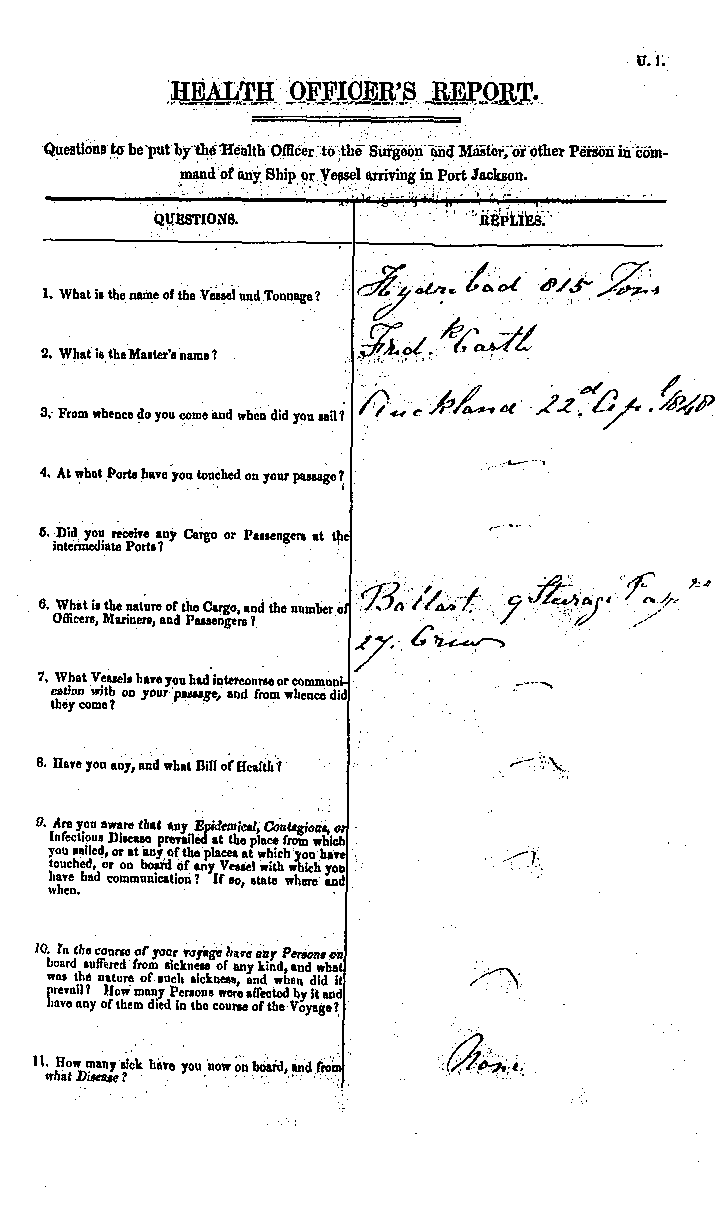 U. 1.
HEALTH OFFICER'S REPORT.
Questions to be put by the Health Officer to the Surgeon and Master, or other Person in com-
mand of any Ship or Vessel arriving in Port Jackson.
QUESTIONS.
REPLIES.
1. What is the name of the Vessel and Tonnage?
Hydrabad 815 Tons
2. What is the Master's name?
Fred.k Carth
3. From whence do you come and when did you sail?
Auckland 22d. Apl. 1848
4. At what Ports have you touched on your passage?
—
5. Did you receive any Cargo or Passengers at the
intermediate Ports?
—
6. What is the nature of the Cargo, and the number of
Officers, Mariners, and Passengers?
Ballast 9 Sturage
27. Crew
7. What Vessels have you had intercourse or communi-
cation with on your passage, and from whence did
they come?
—
8. Have you any, and what Bill of Health?
—
9. Are you aware that any Epidemical, Contagious, or
Infectious Disease prevailed at the place from which
you sailed, or at any of the places at which you have
touched, or on board of any Vessel with which you
have had communication? If so, state where and
when.
—
10. In the course of your voyage have any Persons on
board suffered from sickness of any kind, and what
was the nature of such sickness, and when did it
prevail? How many Persons were affected by it and
have any of them died in the course of the Voyage?
—
11. How many sick have you now on board, and from
what Disease?
None